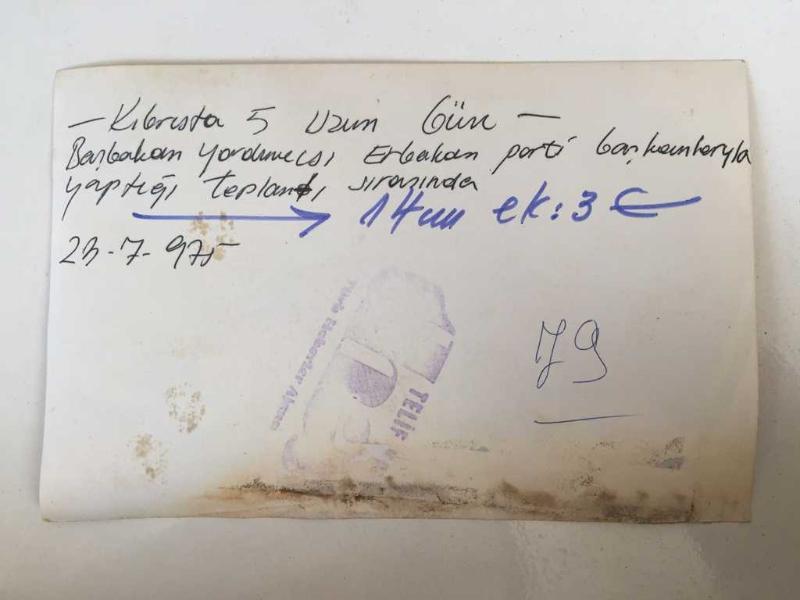 — Kıbrısta 5 Uzun Gün —
Başbakan Yardımcısı Erbakan parti başkanlarıyla
yaptığı toplantı sırasında
14 cm ek: 3
23-7-975
79
Haberler Ajansı
TELİF